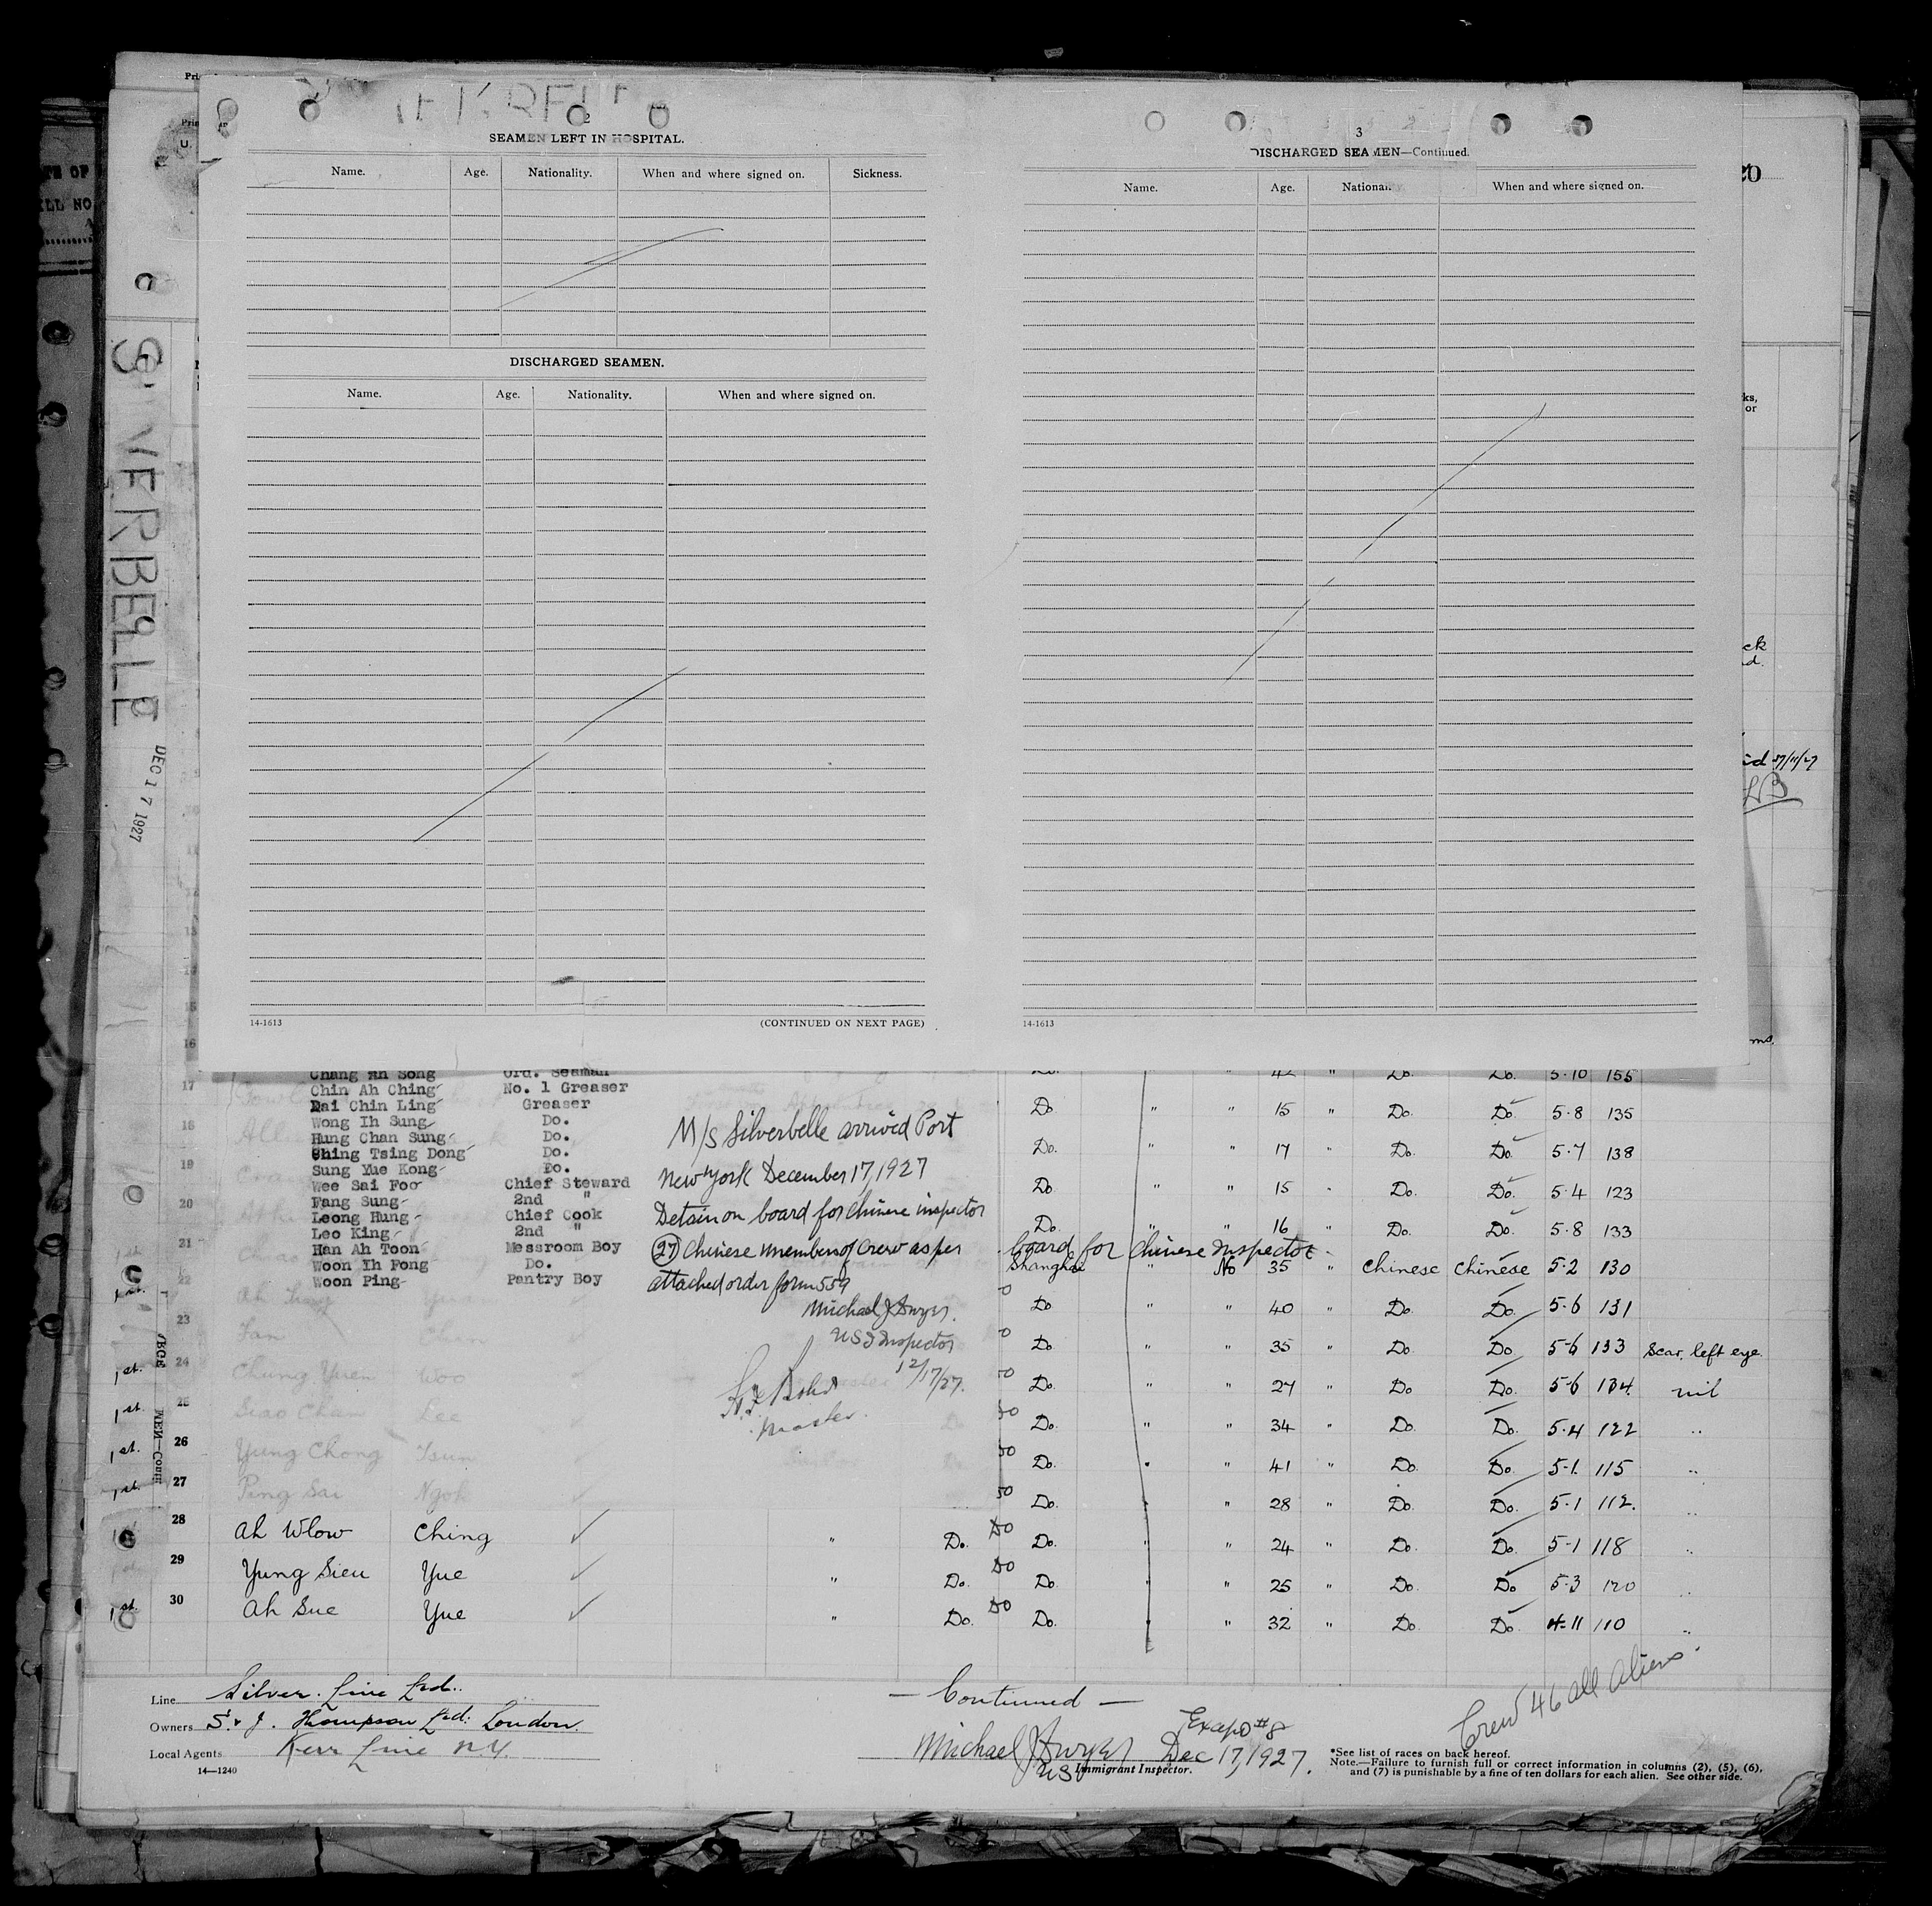 SILVERBELLE
DEC 17 1927
2
SEAMEN LEFT IN HOSPITAL.
Name. Age. Nationality. When and where signed on. Sickness.
DISCHARGED SEAMEN.
Name. Age. Nationality. When and where signed on.
14-1613 (CONTINUED ON NEXT PAGE)
3
DISCHARGED SEAMEN—Continued.
Name. Age. When and where signed on.
14-1613
Chang Ah Song Ord. Seaman
Chin Ah Ching No. 1 Greaser
Dai Chin Ling Greaser
Wong Ih Sung Do.
Hung Chan Sung Do.
Ching Tsing Dong Do.
Sung Yue Kong Do.
Wee Sai Foo Chief Steward
Fang Sung 2nd "
Leong Hung Chief Cook
Leo King 2nd "
Han Ah Toon Messroom Boy
Woon Ih Fong Do.
Woon Ping Pantry Boy
M/S Silverbelle arrived Port
New York December 17, 1927
Detain on board for Chinese inspector
(27) Chinese members of Crew as per
attached order form 559
Michael J Dwyer.
US I Inspector
12/17/27.
Master.
Do. " 42 " Do. Do. 5·10 155
Do " " 15 " Do. Do. 5·8 135
Do. " " 17 " Do. Do. 5·7 138
Do " " 15 " Do. Do. 5·4 123
Do. " " 16 " Do. Do. 5·8 133
board for Chinese Inspector
Shanghai " No 35 " Chinese Chinese 5·2 130
Do " " 40 " Do. Do. 5·6 131
Do " " 35 " Do Do. 5-6 133 Scar, left eye
24 Chung Yuen Woo Do. " " 27 " Do Do. 5-6 134 nil
25 Siao Chan Lee Do. " " 34 " Do. Do. 5·4 122 "
26 Yung Chong Tsun Do. " " 41 " Do. Do. 5-1. 115 "
27 Ping Sai Ngoh Do. " " 28 " Do. Do. 5·1 112. "
28 Ah Wlow Ching ✓ " Do. Do Do. " " 24 " Do. Do. 5-1 118 "
29 Yung Sieu Yue ✓ " Do. Do Do. " " 25 " Do. Do 5·3 120 "
30 Ah Sue Yue ✓ " Do. Do Do. " " 32 " Do. Do. 4-11 110 "
Line Silver Line Ltd.
Owners S. & J. Thompson Ltd. London.
Local Agents Kerr Line N.Y.
14—1240
— Continued —
Michael J Dwyer Dec 17, 1927.
Immigrant Inspector.
Crew 46 all Aliens.
*See list of races on back hereof.
Note.—Failure to furnish full or correct information in columns (2), (5), (6),
and (7) is punishable by a fine of ten dollars for each alien. See other side.